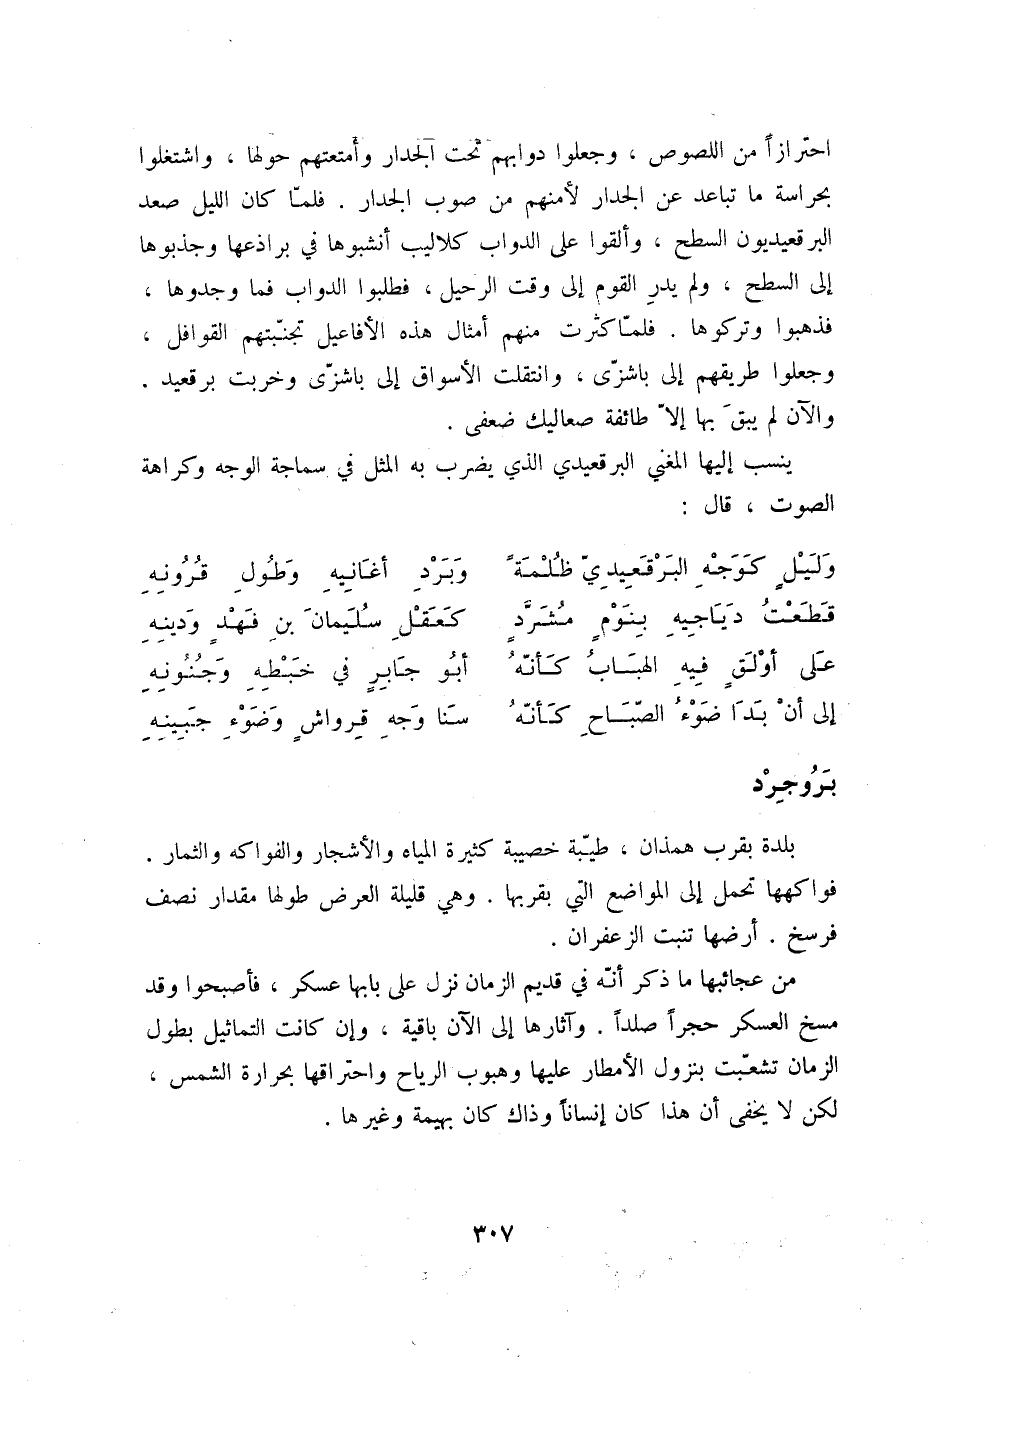 احترازاً من اللصوص ، وجعلوا دوابهم تحت الجدار وأمتعتهم حولها ، واشتغلوا
بحراسة ما تباعد عن الجدار لأمنهم من صوب الجدار . فلمّا كان الليل صعد
البرقعيديون السطح ، وألقوا على الدواب كلاليب أنشبوها في براذعها وجذبوها
إلى السطح ، ولم يدرِ القوم إلى وقت الرحيل ، فطلبوا الدواب فما وجدوها ،
فذهبوا وتركوها . فلمّا كثرت منهم أمثال هذه الأفاعيل تجنّبتهم القوافل ،
وجعلوا طريقهم إلى باشزّى ، وانتقلت الأسواق إلى باشزّى وخربت برقعيد .
والآن لم يبقَ بها إلاّ طائفة صعاليك ضعفى .
ينسب إليها المغني البرقعيدي الذي يضرب به المثل في سماجة الوجه وكراهة
الصوت ، قال :
وَلَيْلٍ كَوَجْهِ البَرْقَعِيدِيّ ظُلْمَةً وَبَرْدِ أغَانِيهِ وَطُولِ قُرُونِهِ
قَطَعْتُ دَيَاجِيهِ بِنَوْمٍ مُشَرَّدٍ كَعَقْلِ سُلَيمانَ بنِ فَهْدٍ وَدِينِهِ
عَلى أوْلَقٍ فِيهِ الهبَابُ كَأنّهُ أبُو جَابِرٍ في خَبْطِهِ وَجُنُونِهِ
إلى أنْ بَدَا ضَوْءُ الصّبَاحِ كَأنّهُ سَنا وَجهِ قِرواشٍ وَضَوْءِ جَبِينِهِ
بَرُوجِرْد
بلدة بقرب همذان ، طيّبة خصيبة كثيرة المياه والأشجار والفواكه والثمار .
فواكهها تحمل إلى المواضع التي بقربها . وهي قليلة العرض طولها مقدار نصف
فرسخ . أرضها تنبت الزعفران .
من عجائبها ما ذكر أنّه في قديم الزمان نزل على بابها عسكر ، فأصبحوا وقد
مسخ العسكر حجراً صلداً . وآثارها إلى الآن باقية ، وإن كانت التماثيل بطول
الزمان تشعّبت بنزول الأمطار عليها وهبوب الرياح واحتراقها بحرارة الشمس ،
لكن لا يخفى أن هذا كان إنساناً وذاك كان بهيمة وغيرها .
٣٠٧